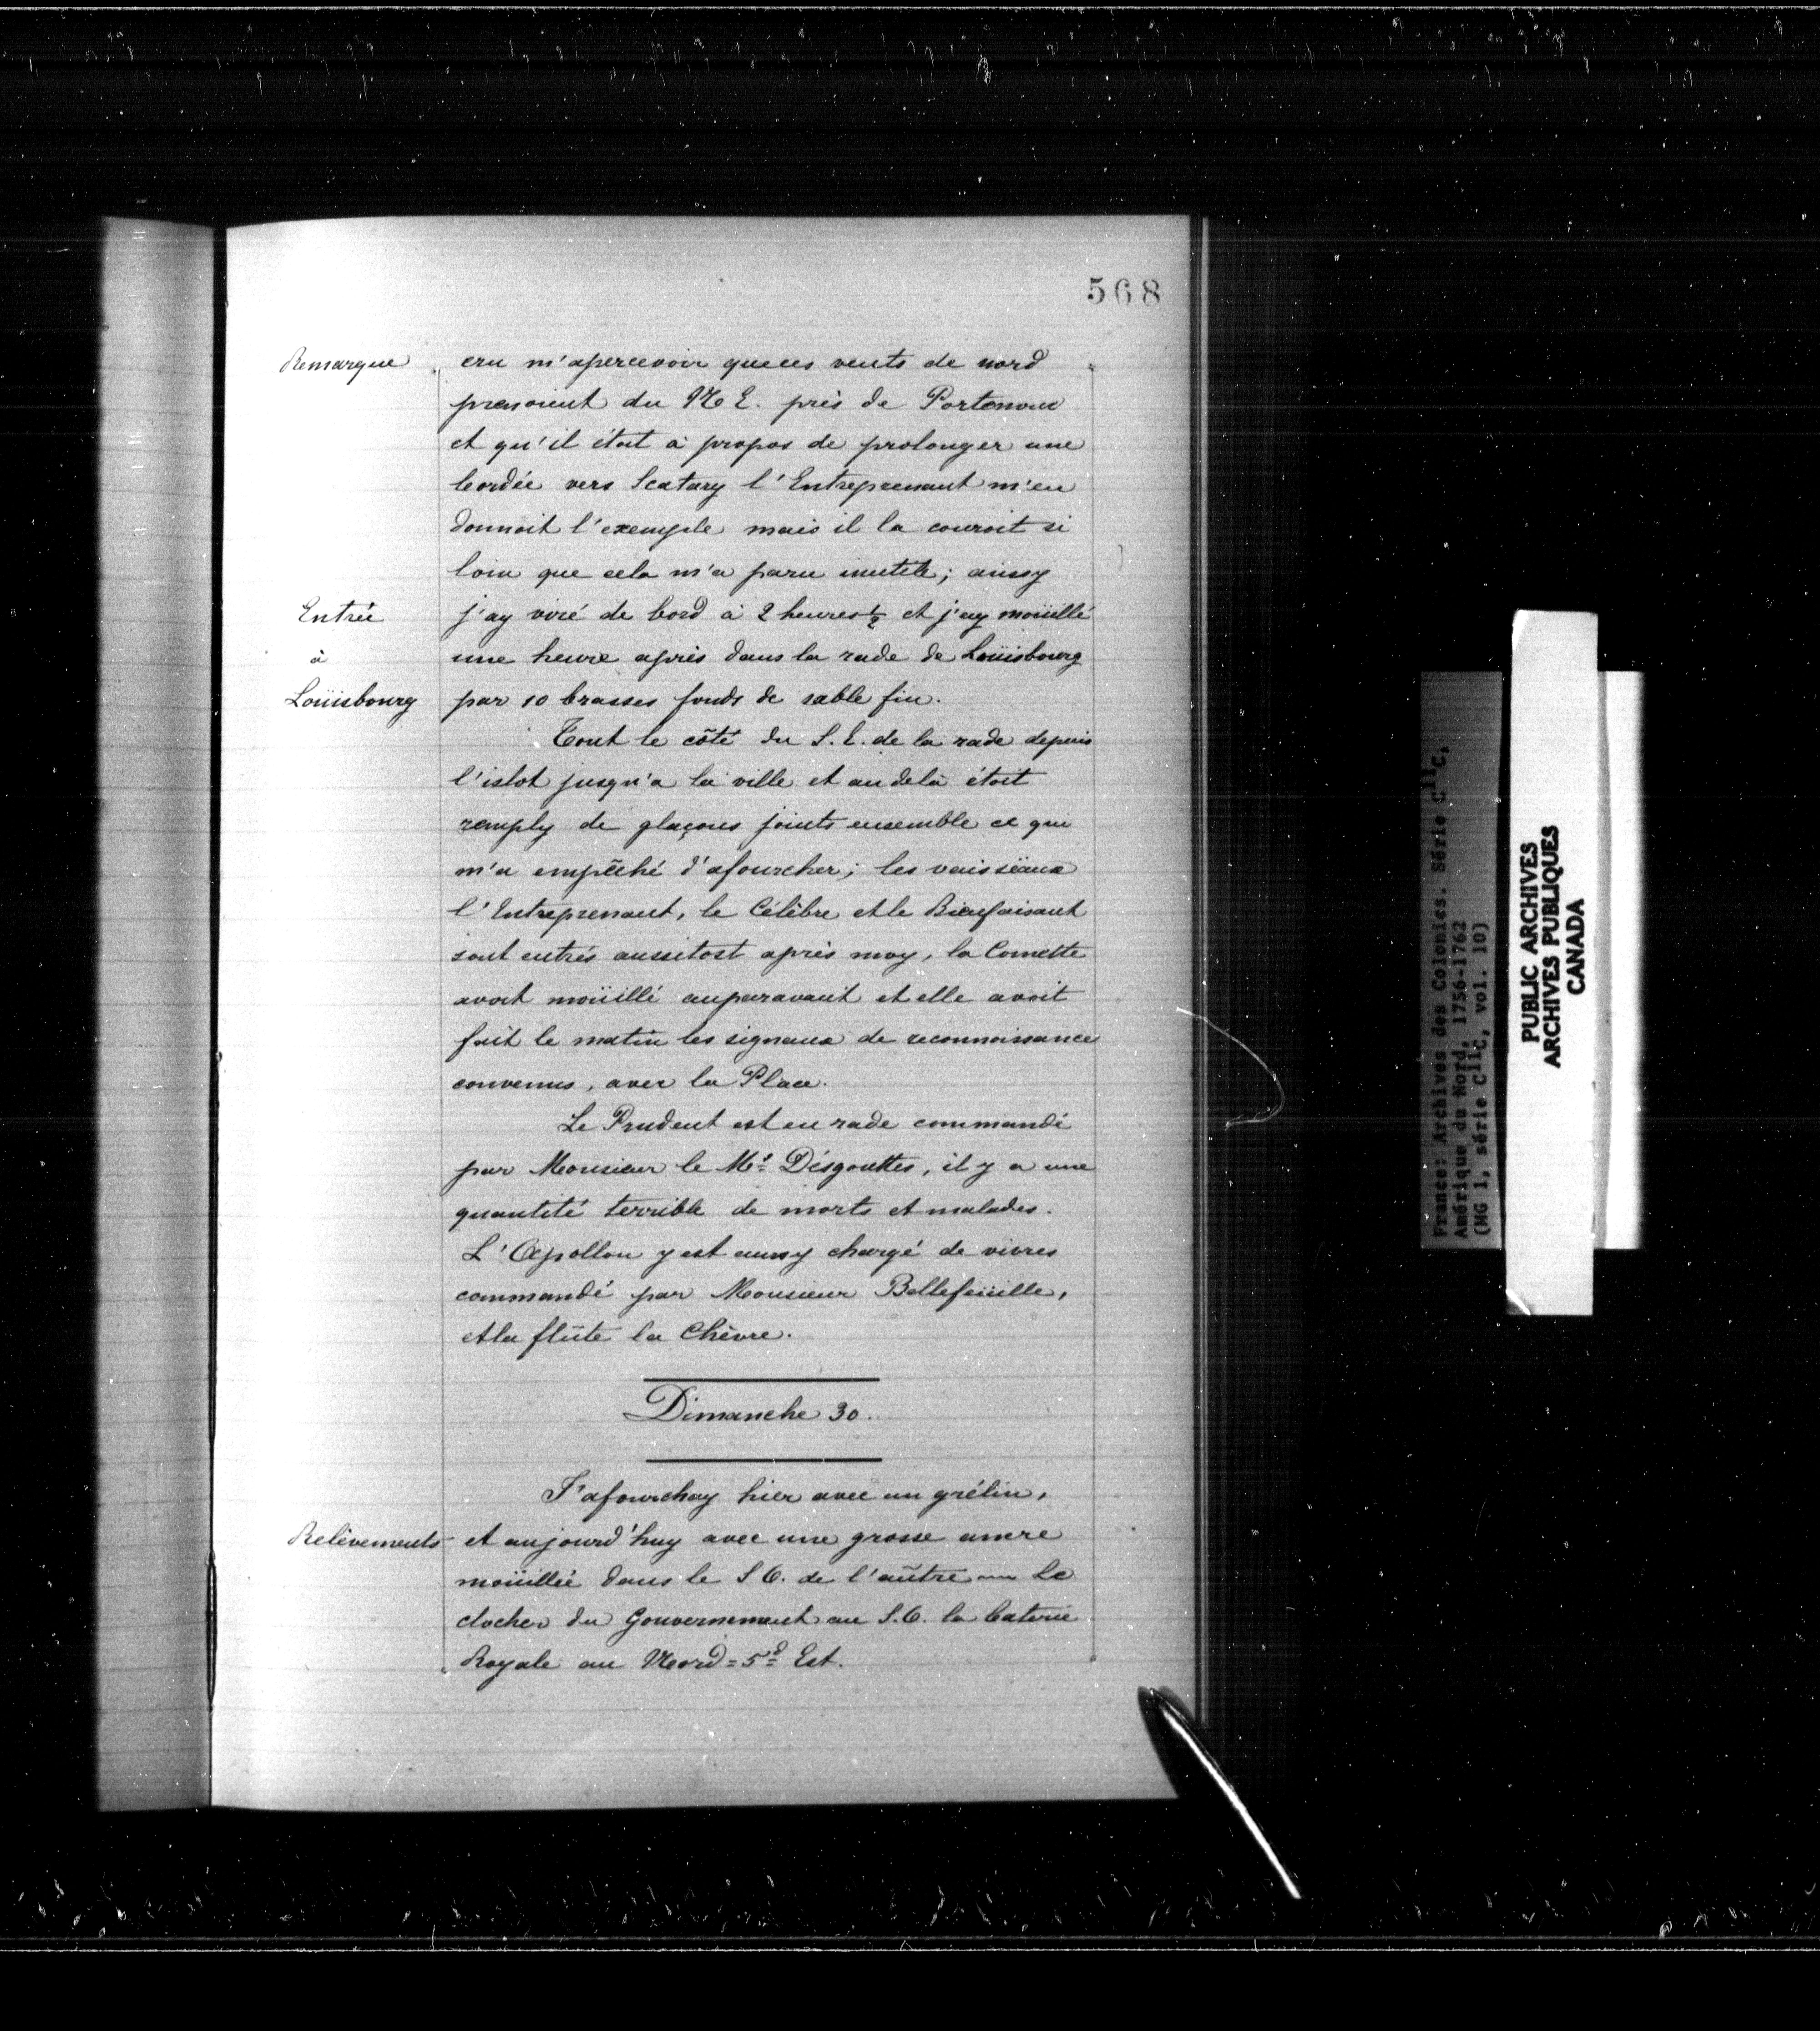 568
Remarque
cru m'apercevoir que ces vents de nord
prenoient du N E. près de Portenove
et qu'il étoit à propos de prolonger une
bordée vers Scatary l'Entreprenant m'en
donnoit l'exemple mais il la couroit si
loin que cela m'a paru inutile; aussy
Entrée
à
Loüisbourg
j'ay viré de bord à 2 heures 1/2 et j'ay moüillé
une heure après dans la rade de Loüisbourg
par 10 brasses fonds de sable fin.
Tout le côté du S. E. de la rade depuis
l'islot jusqu'a la ville et au delà étoit
remply de glaçons joints ensemble ce qui
m'a empêché d'afourcher; les vaisseaux
l'Entreprenant, le Célèbre et le Bienfaisant
sont entrés aussitost après moy, la Comette
avoit moüillé auparavant et elle avoit
fait le matin les signaux de reconnoissance
convenus, avec la Place.
Le Prudent est en rade commandé
par Monsieur le Mis Désgouttes, il y a une
quantité terrible de morts et malades.
L'Apollon y est aussy chargé de vivres
commandé par Monsieur Bellefeüille,
et la flûte la Chèvre.
Dimanche 30.
J'afourchay hier avec un grélin,
Relèvements
et aujourd'huy avec une grosse ancre
moüillée dans le S O. de l'aûtre — Le
clocher du Gouvernement au S. O. la baterie
Royale au Nord = 5d Est.
France: Archives des Colonies. Série C11C,
Amérique du Nord, 1756-1762
(MG 1, série C11C, vol. 10)
PUBLIC ARCHIVES
ARCHIVES PUBLIQUES
CANADA